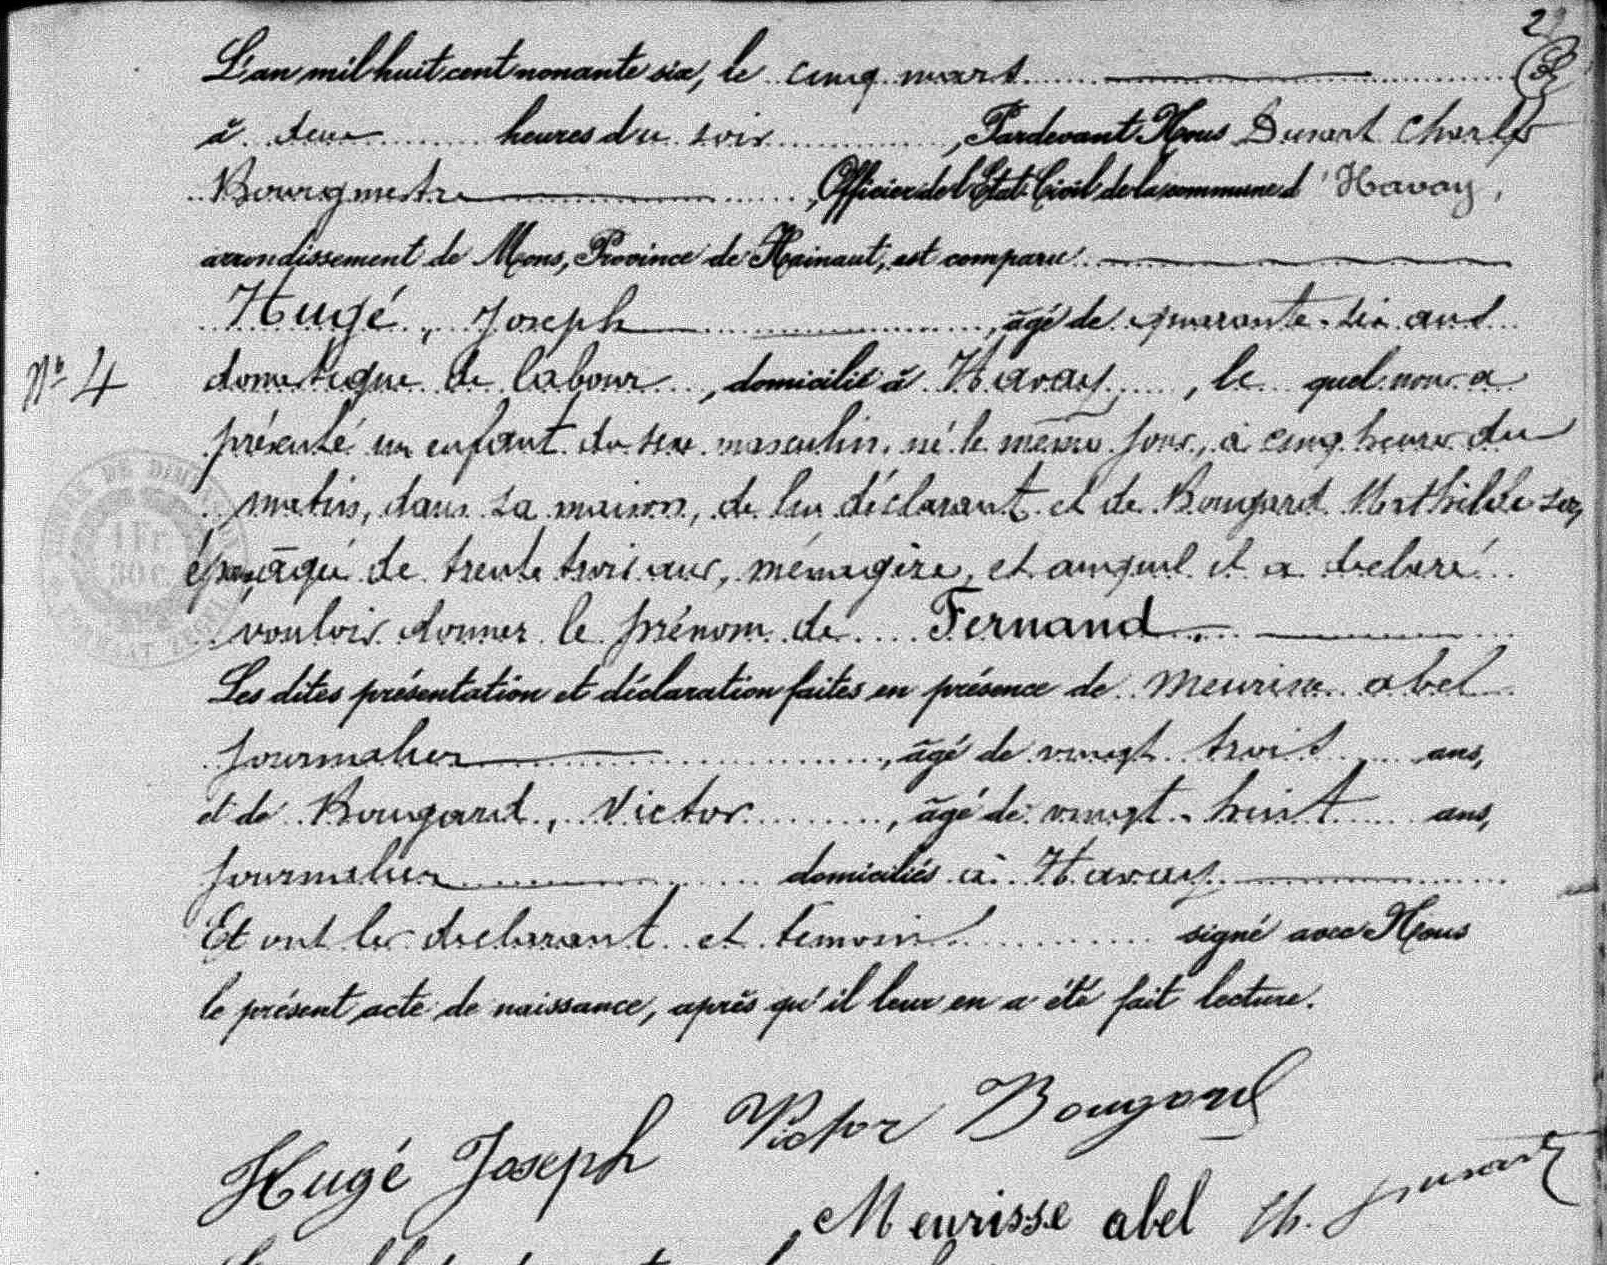 2
L'an mil huit cent nonante six, le cinq mars
à deux heures du soir, Pardevant Nous Dusart Charles
Bourgmestre, Officier de l'Etat Civil de la commune d'Havay,
arrondissement de Mons, Province de Hainaut, est comparu
Hugé, Joseph, âgé de quarante-six ans
Nº 4
domestique de labour, domicilié à Havay, le quel nous a
présenté un enfant du sexe masculin, né le même jour, à cinq heures du
matin, dans sa maison, de lui déclarant et de Bougard Mathilde son
épouse, âgée de trente trois ans, ménagère, et auquel il a déclaré
vouloir donner le prénom de Fernand.
Les dites présentation et déclaration faites en présence de Meurisse abel
journalier, âgé de vingt trois ans,
et de Bougard, Victor, âgé de vingt-huit ans,
journalier domiciliés à Havay
Et ont les déclarant et témoins signé avec Nous
le présent acte de naissance, après qu'il leur en a été fait lecture.
Victor Bougard
Hugé Joseph
Meurisse abel Ch. Dusart